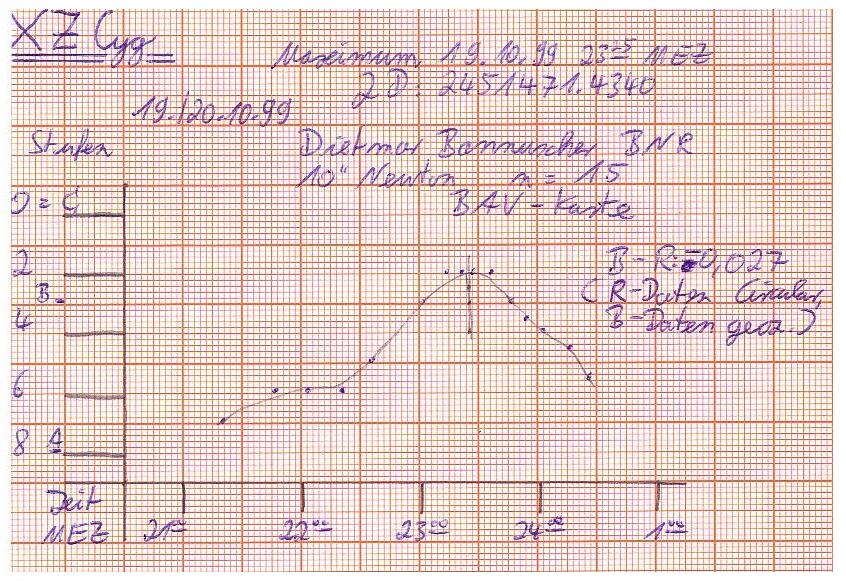 XZ Cyg
Maximum 19.10.99 23 25 MEZ
JD: 2451471.4340
19./20.10.99
Stufen
Dietmar Bannuscher BNR
10" Newton n = 15
BAV-Karte
0 = C
2
B
4
6
8 A
B-R: -0,027
(R-Daten Circular,
B-Daten geoz.)
Zeit
MEZ 21 00 22 00 23 00 24 00 1 00